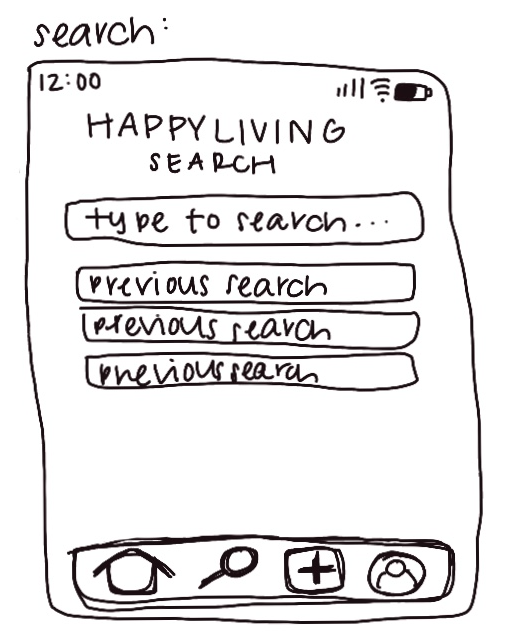 search:
12:00
HAPPYLIVING
SEARCH
type to search...
previous search
previous search
previous search